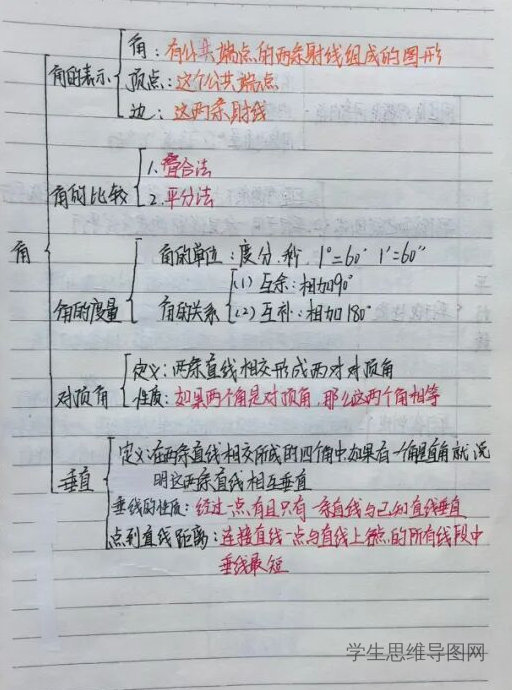 角
角的表示
角：有公共端点的两条射线组成的图形
顶点：这个公共端点
边：这两条射线
角的比较
1.叠合法
2.平分法
角的度量
角的单位：度.分.秒. 1°=60′ 1′=60″
角的关系
(1)互余：相加90°
(2)互补：相加180°
对顶角
定义：两条直线相交形成两对对顶角
性质：如果两个角是对顶角.那么这两个角相等
垂直
定义：在两条直线相交所成的四个角中.如果有一个角是直角就说
明这两条直线相互垂直
垂线的性质：经过一点.有且只有一条直线与已知直线垂直
点到直线距离：连接直线一点与直线上各点的所有线段中
垂线最短
学生思维导图网